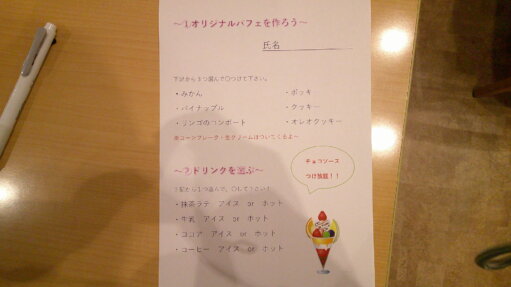 ～①オリジナルパフェを作ろう～
氏名
下記から３つ選んで○つけて下さい。
・みかん ・ポッキー
・パイナップル ・クッキー
・リンゴのコンポート ・オレオクッキー
※コーンフレーク・生クリームはついてくるよ～
～②ドリンクを選ぶ～
チョコソース
つけ放題！！
下記から１つ選んで、○して下さい！
・抹茶ラテ アイス or ホット
・牛乳 アイス or ホット
・ココア アイス or ホット
・コーヒー アイス or ホット